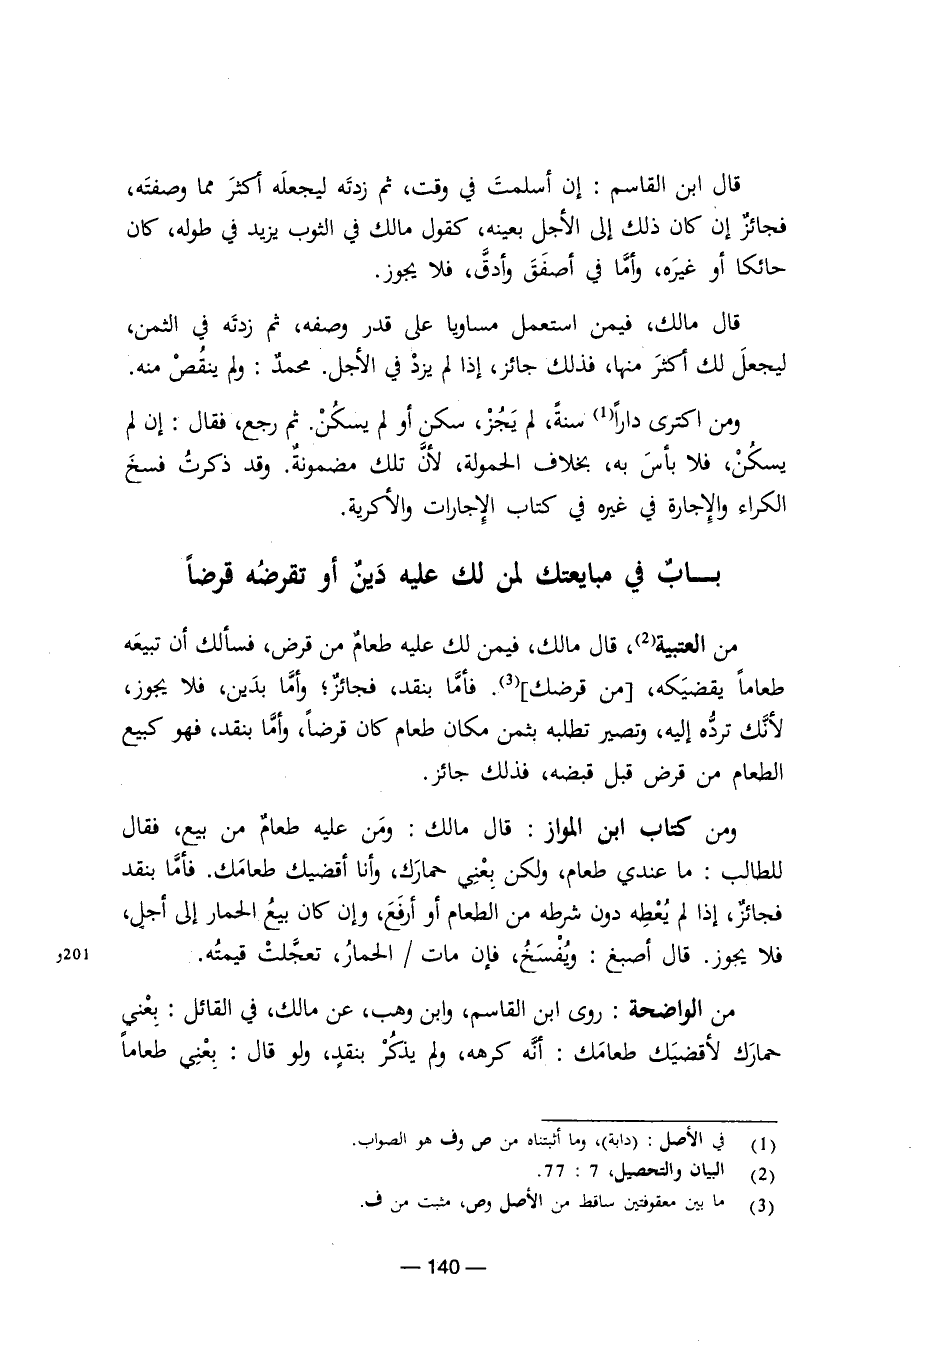 قال ابن القاسم : إن أسلمتَ في وقت، ثم زدتَه ليجعلَه أكثرَ مما وصفتَه،
فجائزٌ إن كان ذلك إلى الأجل بعينه، كقول مالك في الثوب يزيد في طوله، كان
حائكا أو غيرَه، وأمَّا في أصفَقَ وأدقَّ، فلا يجوز.
قال مالك، فيمن استعمل مساويا على قدر وصفه، ثم زدتَه في الثمن،
ليجعلَ لك أكثرَ منها، فذلك جائز، إذا لم يزدْ في الأجل. محمدٌ : ولم ينقُصْ منه.
ومن اكترى داراً(1) سنةً، لم يَجُزْ، سكن أو لم يسكُنْ. ثم رجع، فقال : إن لم
يسكُنْ، فلا بأسَ به، بخلاف الحمولة، لأنَّ تلك مضمونةٌ. وقد ذكرتُ فسخَ
الكراء والإجارة في غيره في كتاب الإجارات والأكرية.
بــابٌ في مبايعتك لمن لك عليه دَينٌ أو تقرضُه قرضاً
من العتبية(2)، قال مالك، فيمن لك عليه طعامٌ من قرض، فسألك أن تبيعَه
طعاماً يقضيَكه، [من قرضك](3). فأمَّا بنقد، فجائزٌ؛ وأمَّا بدَين، فلا يجوز،
لأنَّك تردُّه إليه، وتصير تطلبه بثمن مكان طعام كان قرضاً، وأمَّا بنقد، فهو كبيع
الطعام من قرض قبل قبضه، فذلك جائز.
ومن كتاب ابن المواز : قال مالك : ومَن عليه طعامٌ من بيع، فقال
للطالب : ما عندي طعام، ولكن بِعْنِي حمارَك، وأنا أقضيك طعامَك. فأمَّا بنقد
فجائزٌ، إذا لم يُعْطِه دون شرطه من الطعام أو أرفَعَ، وإن كان بيعُ الحمار إلى أجل،
فلا يجوز. قال أصبغ : ويُفْسَخُ، فإن مات / الحمارُ، تعجَّلتْ قيمتُه. 201و
من الواضحة : روى ابن القاسم، وابن وهب، عن مالك، في القائل : بِعْني
حمارَك لأقضيَك طعامَك : أنَّه كرهه، ولم يذكُرْ بنقدٍ، ولو قال : بِعْنِي طعاماً
(1) في الأصل : (دابة)، وما أثبتناه من ص وف هو الصواب.
(2) البيان والتحصيل، 7 : 77.
(3) ما بين معقوفتين ساقط من الأصل وص، مثبت من ف.
— 140 —